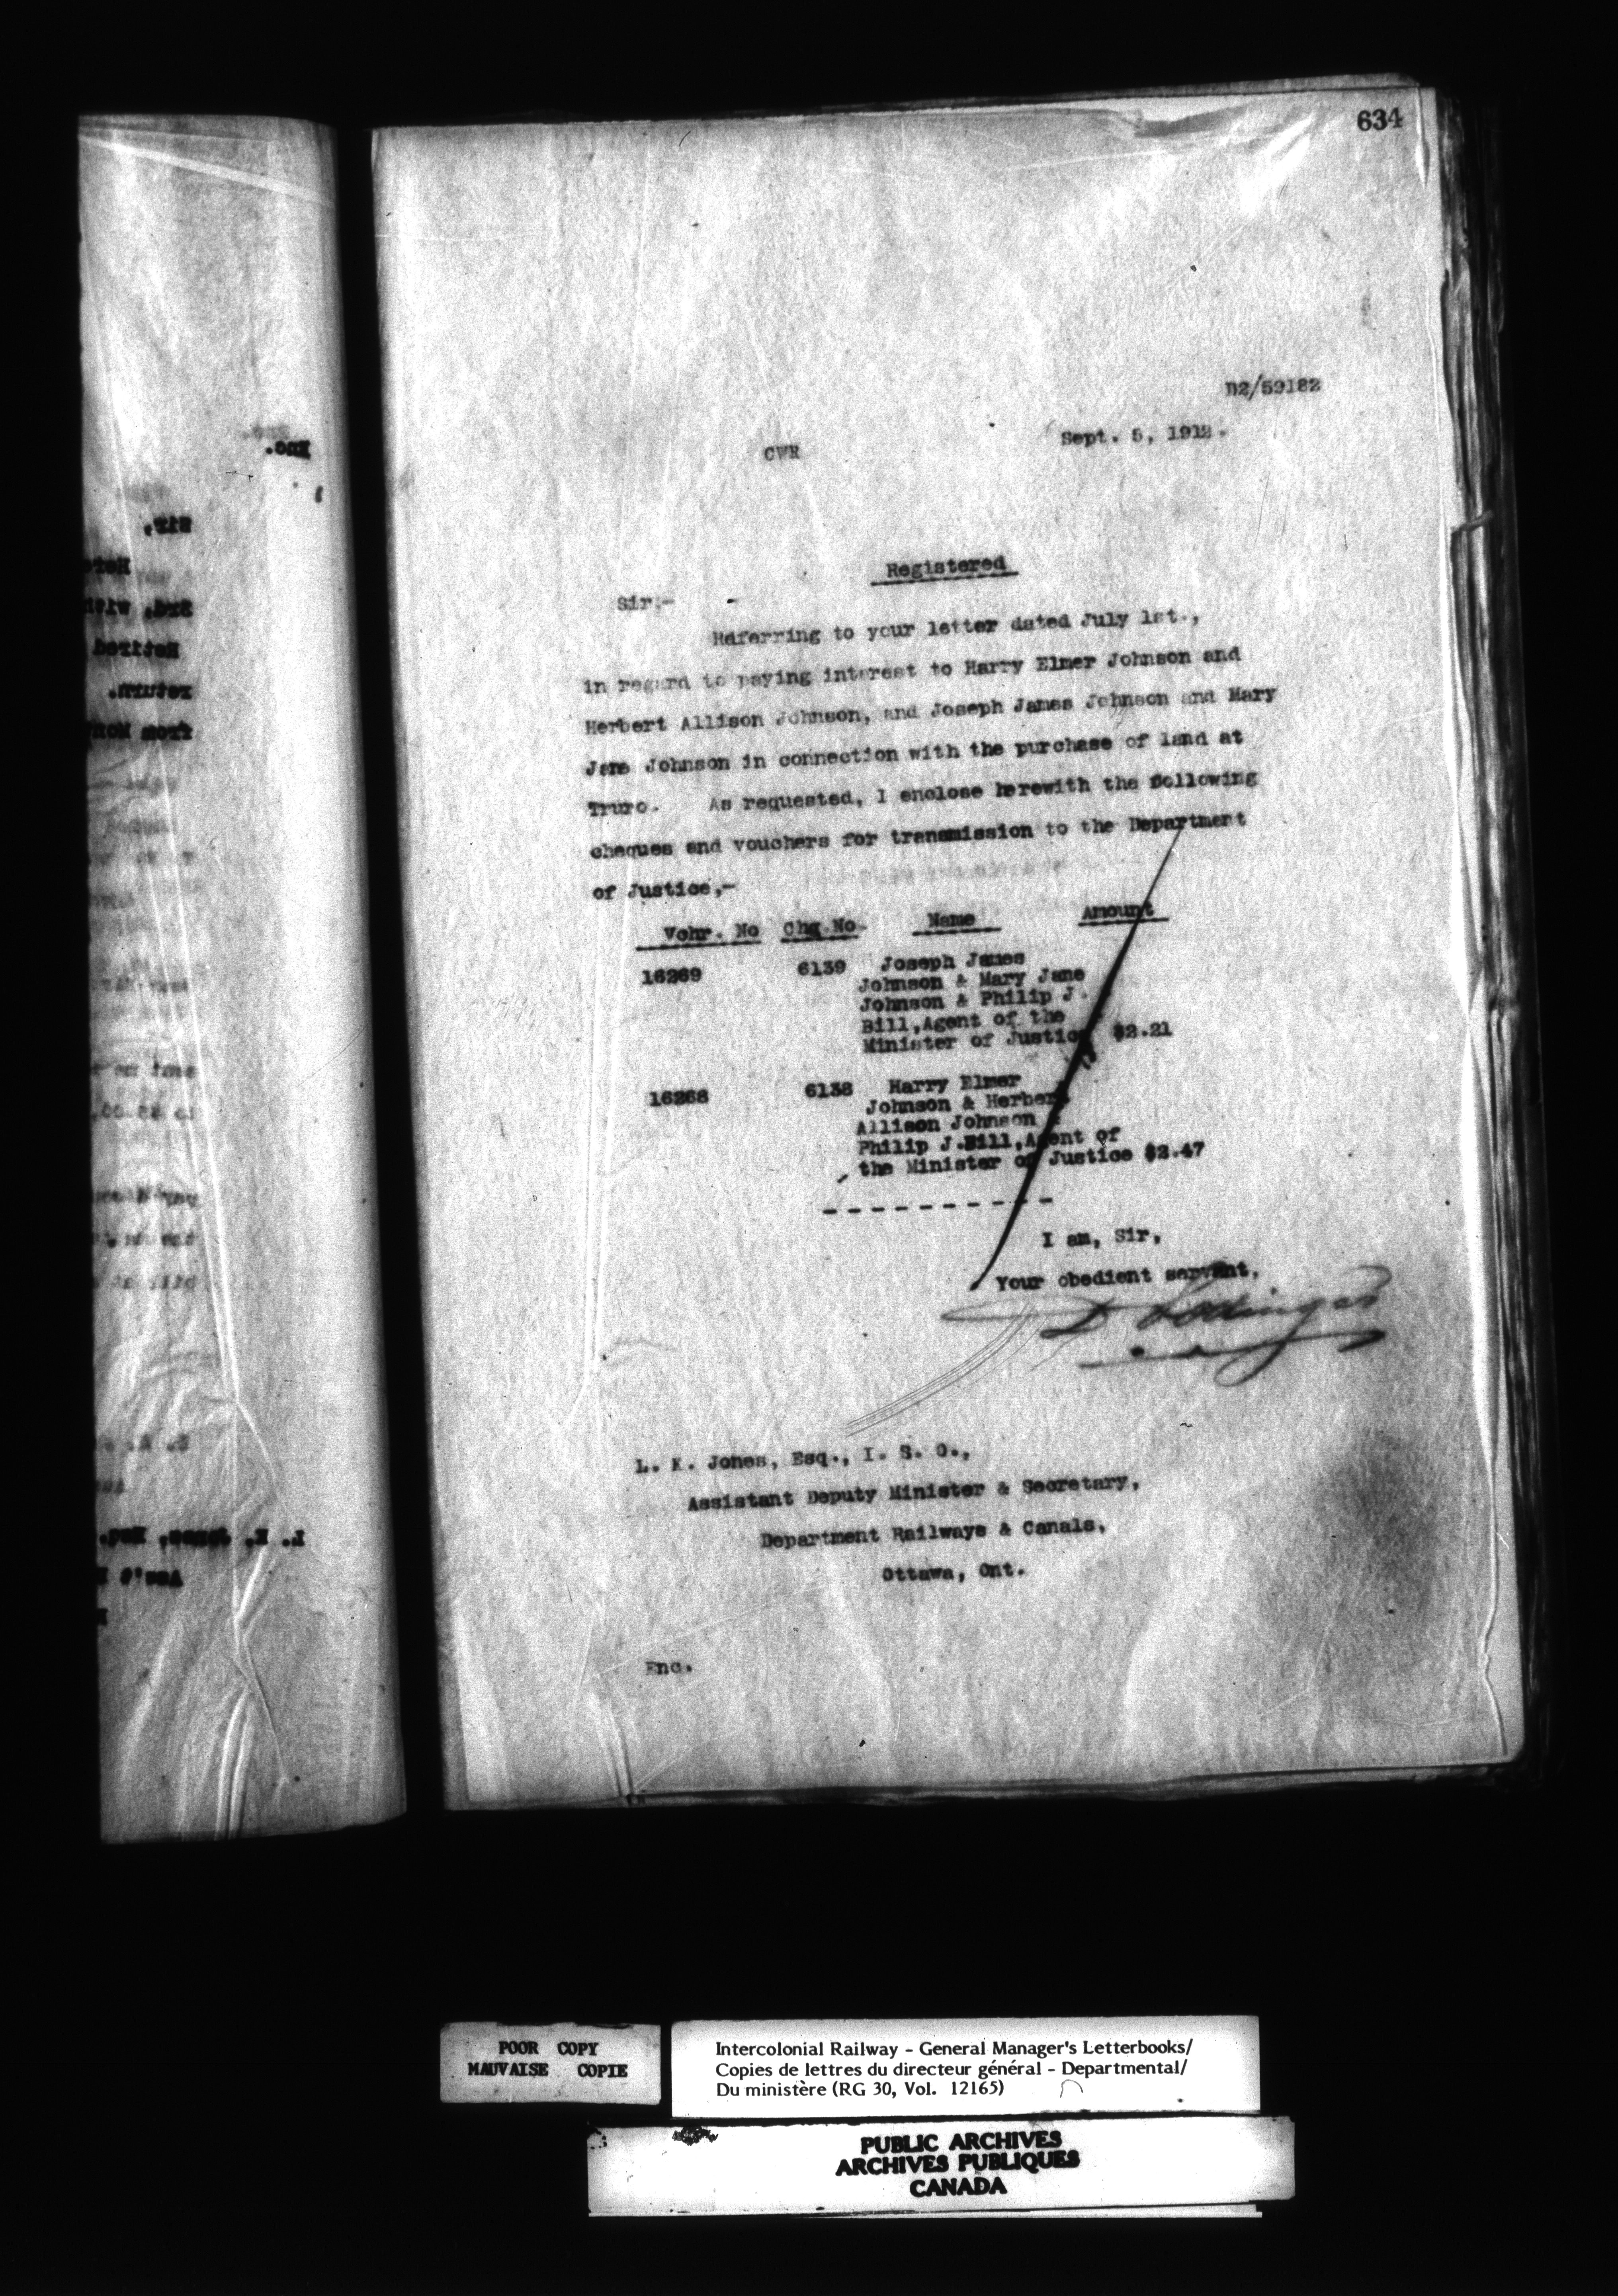 634
D2/59182
Sept. 5, 1912.
CWR
Registered
Sir:-
Referring to your letter dated July 1st.,
in regard to paying interest to Harry Elmer Johnson and
Herbert Allison Johnson, and Joseph James Johnson and Mary
Jane Johnson in connection with the purchase of land at
Truro. As requested, I enclose herewith the following
cheques and vouchers for transmission to the Department
of Justice,-
Vchr. No Chq.No. Name Amount
16269 6139 Joseph James
Johnson & Mary Jane
Johnson & Philip J.
Bill,Agent of the
Minister of Justice $2.21
16268 6138 Harry Elmer
Johnson & Herbert
Allison Johnson
Philip J.Bill,Agent of
the Minister of Justice $2.47
- - - - - - - - - -
I am, Sir,
Your obedient servant,
D Pottinger
L. K. Jones, Esq., I. S. O.,
Assistant Deputy Minister & Secretary,
Department Railways & Canals,
Ottawa, Ont.
Enc.
Enc.
Sir.
Retired
return.
L. K. Jones, Esq.
Ass't
POOR COPY
MAUVAISE COPIE
Intercolonial Railway - General Manager's Letterbooks/
Copies de lettres du directeur général - Departmental/
Du ministère (RG 30, Vol. 12165)
PUBLIC ARCHIVES
ARCHIVES PUBLIQUES
CANADA